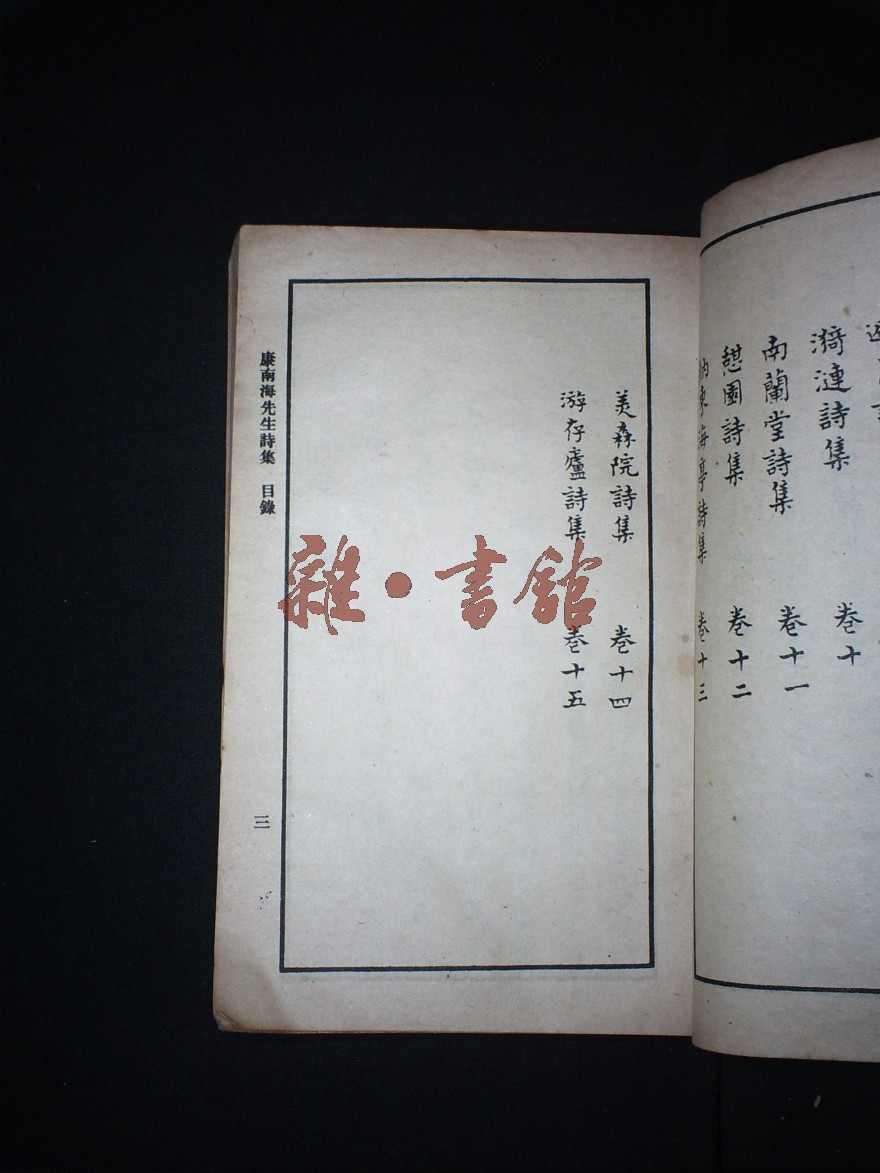 漪漣詩集 卷十
南蘭堂詩集 卷十一
憇園詩集 卷十二
納東海亭詩集 卷十三
美森院詩集 卷十四
游存廬詩集 卷十五
康南海先生詩集 目錄
三
雜·書館